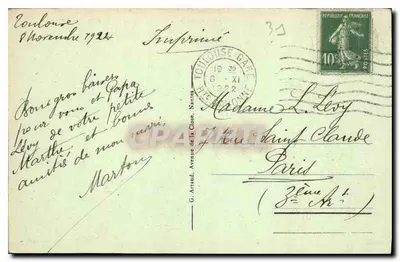 Toulouse
8 Novembre 1924
Imprimé
Bons gros baisers
pour vous et Papa
Lévy de votre petite
Marthe, et bonne
amitiés de mon mari,
Marton
G. Artaud, Avenue de la Close, Nantes
TOULOUSE-GARE
10
8 XI
REPUBLIQUE FRANÇAISE
10c
POSTES
Madame L. Lévy
Rue Saint Claude
Paris
(3ème Art)
CPARAMA